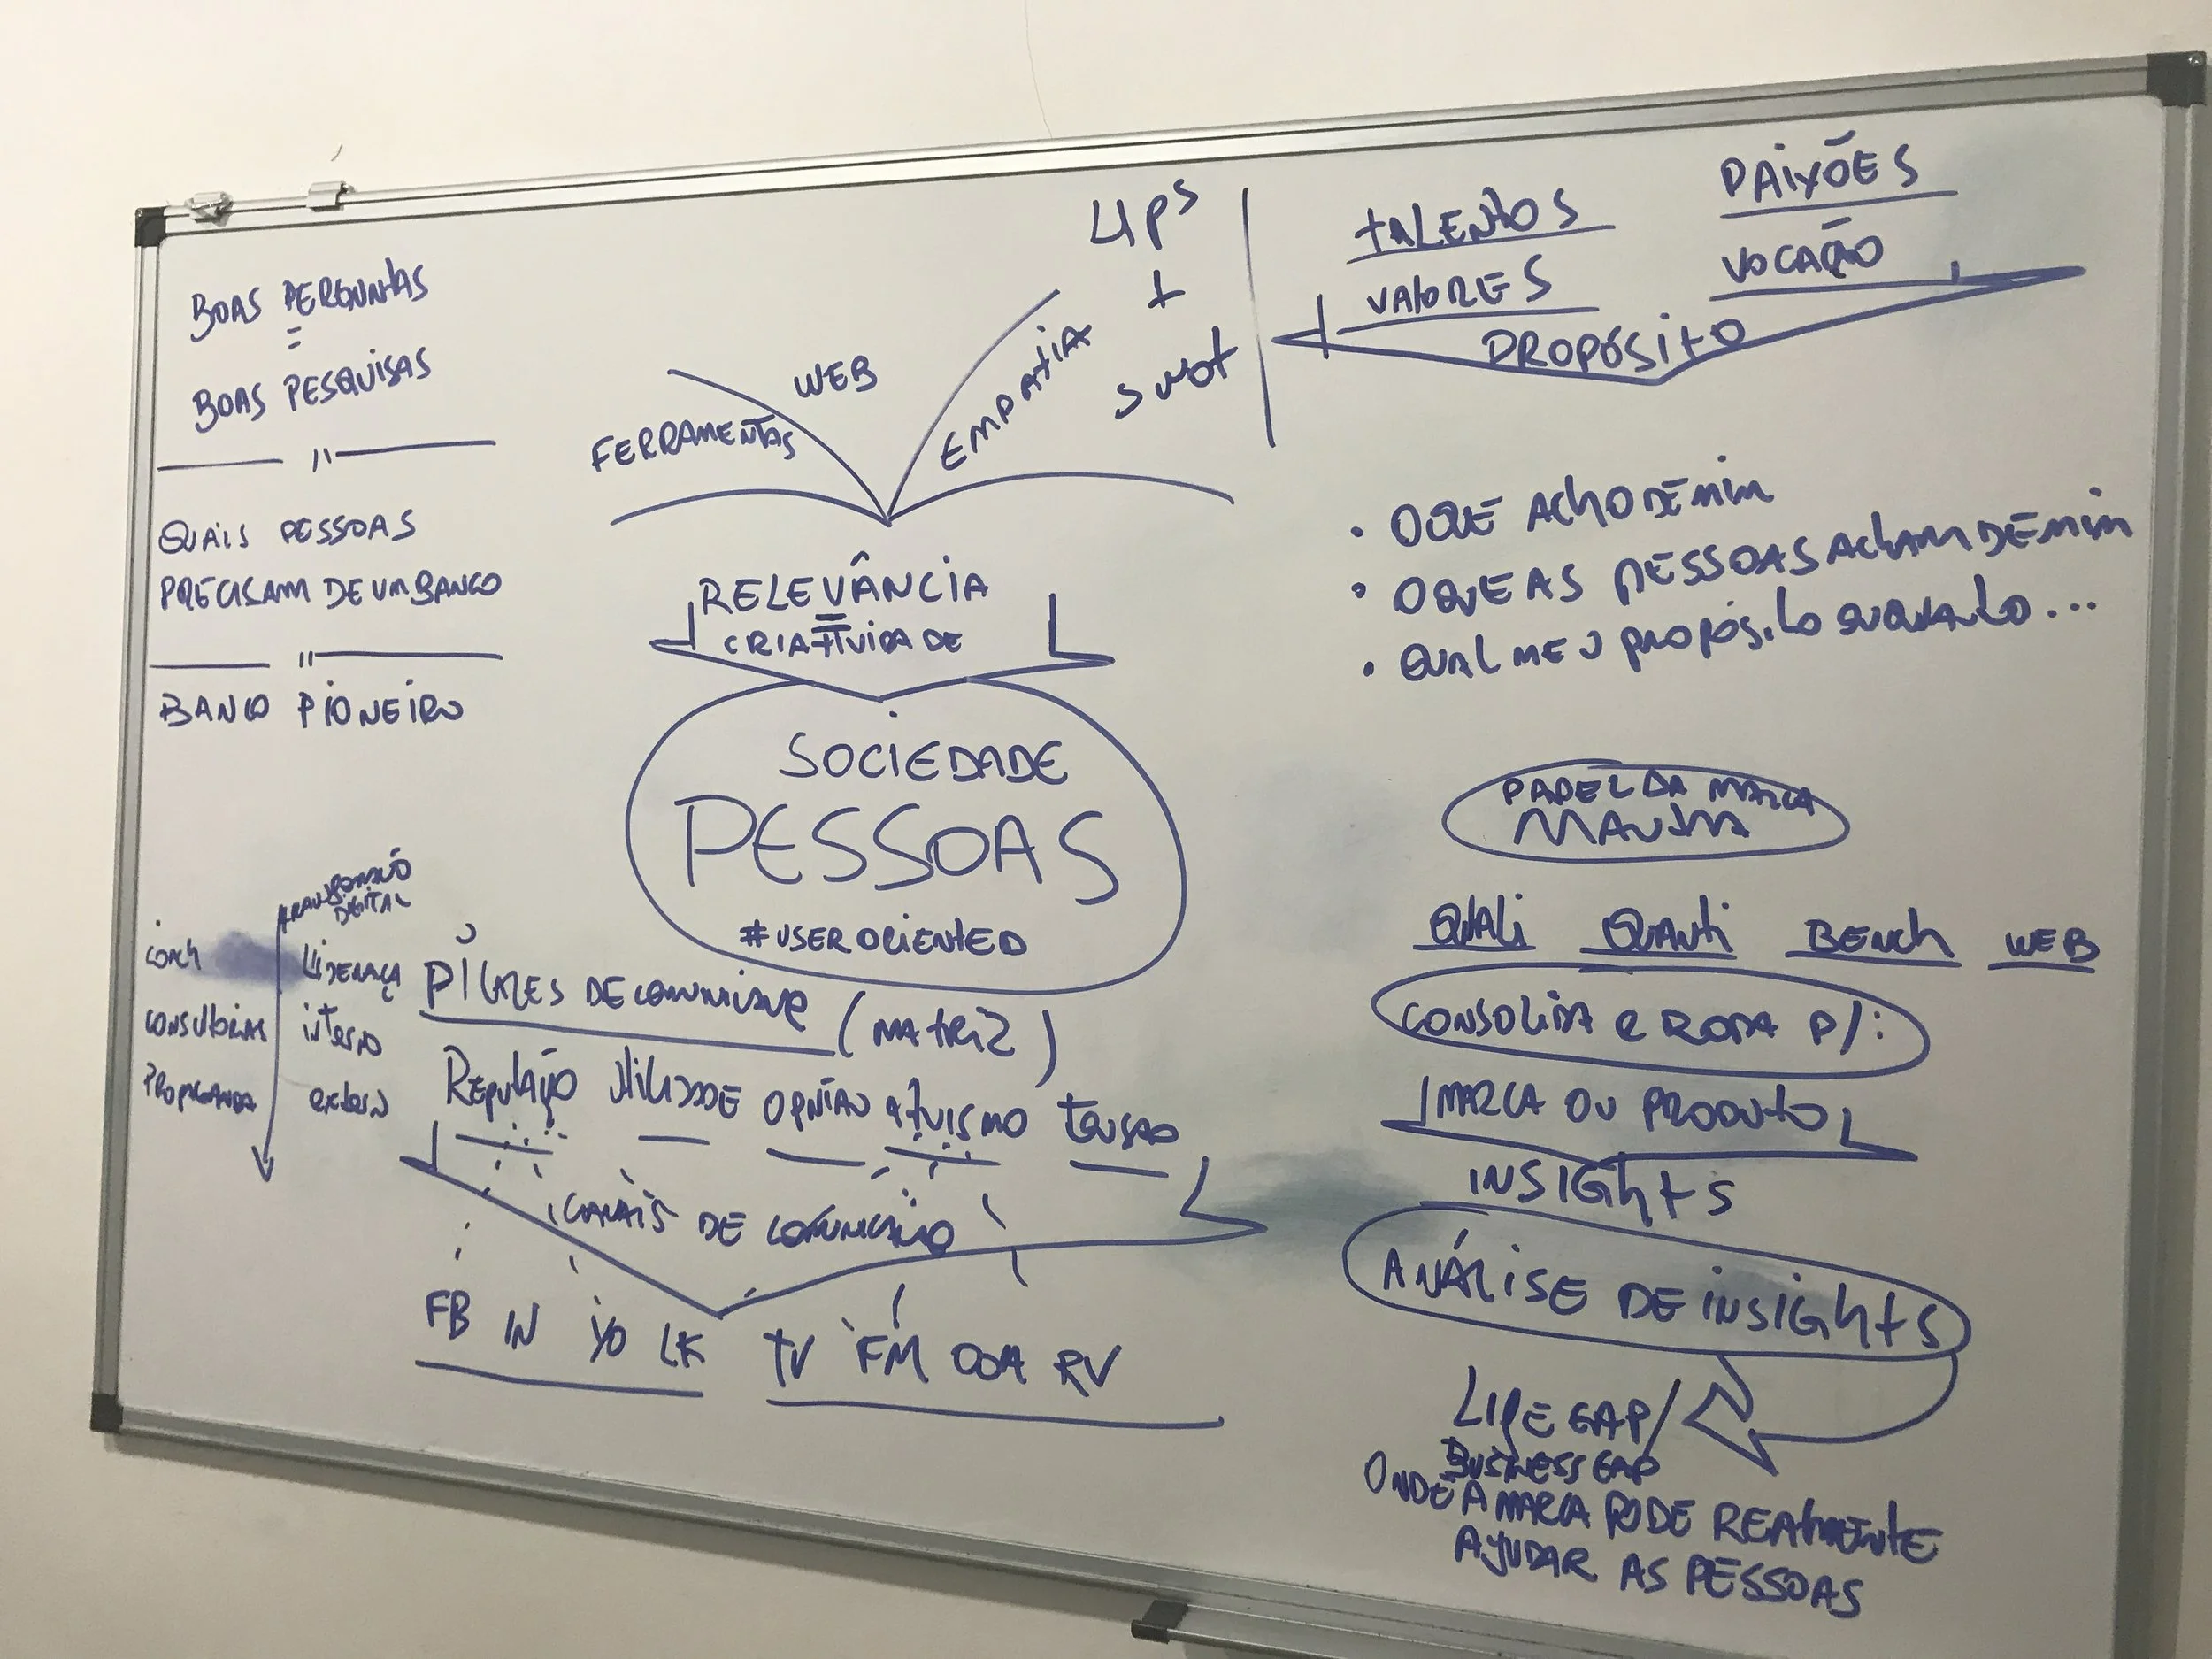 BOAS PERGUNTAS
=
BOAS PESQUISAS
QUAIS PESSOAS
PRECISAM DE UM BANCO
BANCO PIONEIRO
FERRAMENTAS
WEB
EMPATIA
4Ps
+
SWOT
RELEVÂNCIA
=
CRIATIVIDADE
SOCIEDADE
PESSOAS
#USER ORIENTED
TALENTOS
PAIXÕES
VALORES
VOCAÇÃO
PROPÓSITO
• O QUE ACHO DE MIM
• O QUE AS PESSOAS ACHAM DE MIM
• QUAL MEU PROPÓSITO ENQUANTO...
DIGITAL
COACH
LIDERANÇA
CONSULTORIAS
interno
PROPAGANDA
externo
PILARES DE (MATRIZ)
REPUTAÇÃO UTILIDADE OPINIÃO ATIVISMO TENSÃO
CANAIS DE COMUNICAÇÃO
FB IN YO LK TV FM OOH RV
PAPEL DA MARCA
MANTRA
QUALI QUANTI BENCH WEB
CONSOLIDA e RODA P/:
MARCA OU PRODUTO
INSIGHTS
ANÁLISE DE INSIGHTS
LIFE GAP/
BUSINESS GAP
ONDE A MARCA PODE REALMENTE
AJUDAR AS PESSOAS